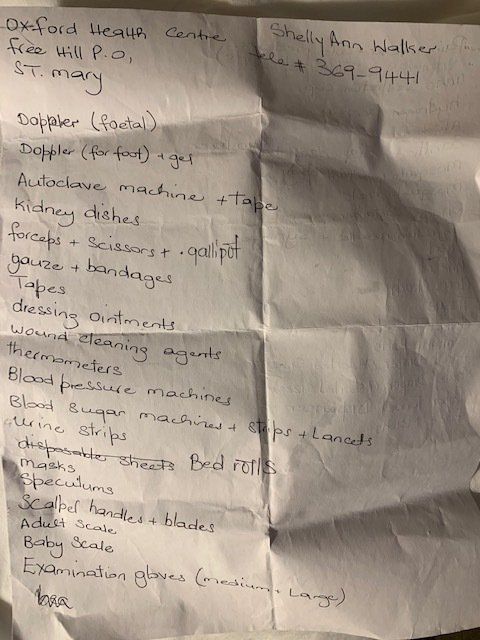 Oxford Health Centre
Free Hill P.O,
ST. mary
Shelly Ann Walker
tele # 369-9441
Doppler (foetal)
Doppler (for foot) + gel
Autoclave machine + Tape
Kidney dishes
forceps + scissors + gallipot
gauze + bandages
Tapes
dressing ointments
wound cleaning agents
thermometers
Blood pressure machines
Blood sugar machines + strips + Lancets
urine strips
disposable sheets Bed rolls
masks
Speculums
Scalpel handles + blades
Adult Scale
Baby Scale
Examination gloves (medium + Large)